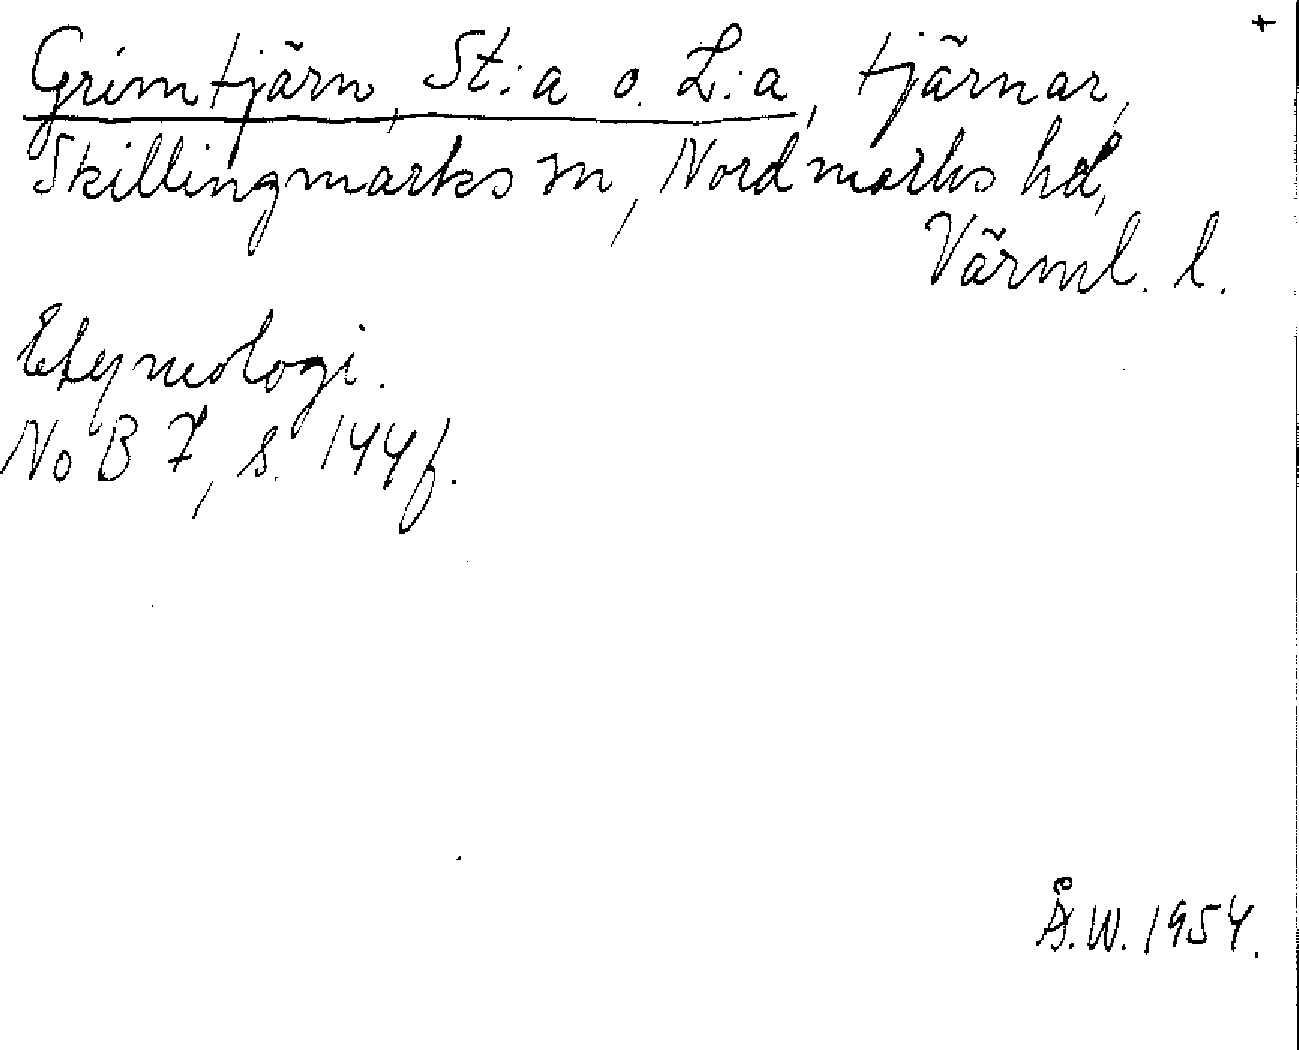 +
Grimtjärn, St:a o. L:a, tjärnar,
Skillingmarks sn, Nordmarks hd,
Värml. l.
Etymologi.
NoB 7, s. 144 f.
Å.W. 1954.